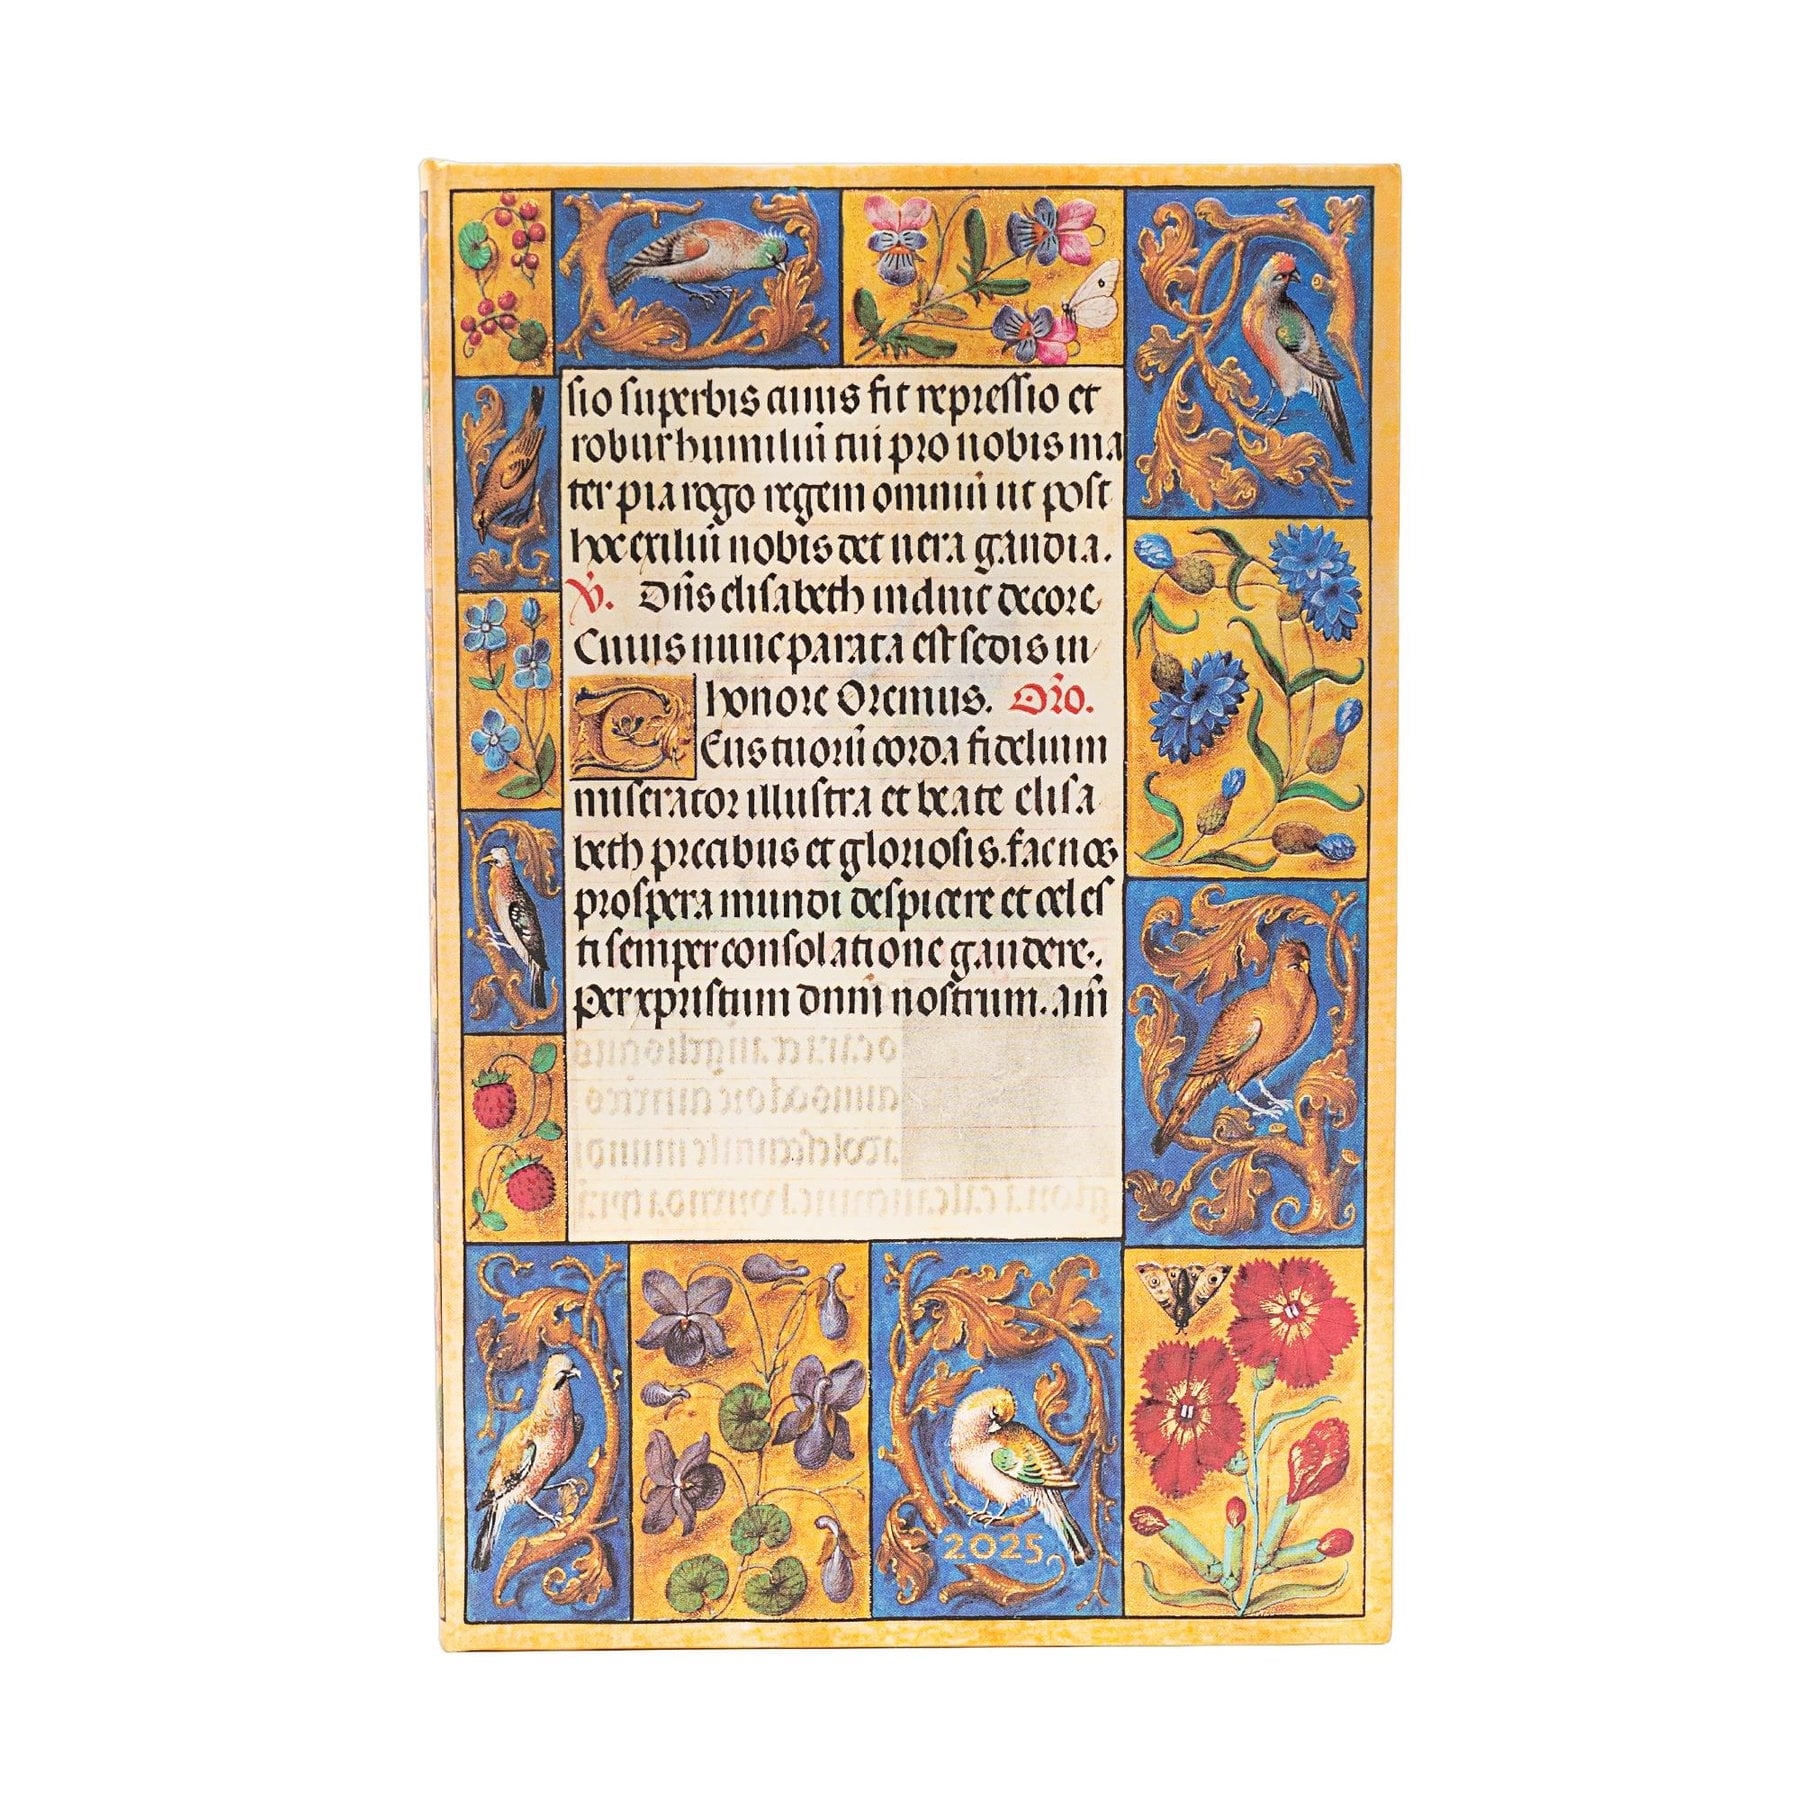 sio superbis cuius fit repressio et
robur humiliū tui pro nobis ma
ter pia rogo regem omniū ut post
hoc exiliū nobis det vera gaudia.
V. Dn̄s elisabeth induit decore
Cuius nunc parata est sedis in
honore Oremus. Orō.
Deus tuorū corda fidelium
miserator illustra et beate elisa
beth precibus et gloriosis. fac nos
prospera mundi despicere et celes
ti semper consolatione gaudere.
Per xpristum dn̄m nostrum. Am̄
2025